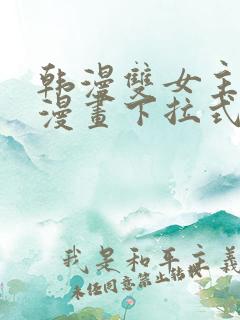 韩漫雙女主
漫畫下拉式
我是和平主義
未经同意禁止转载